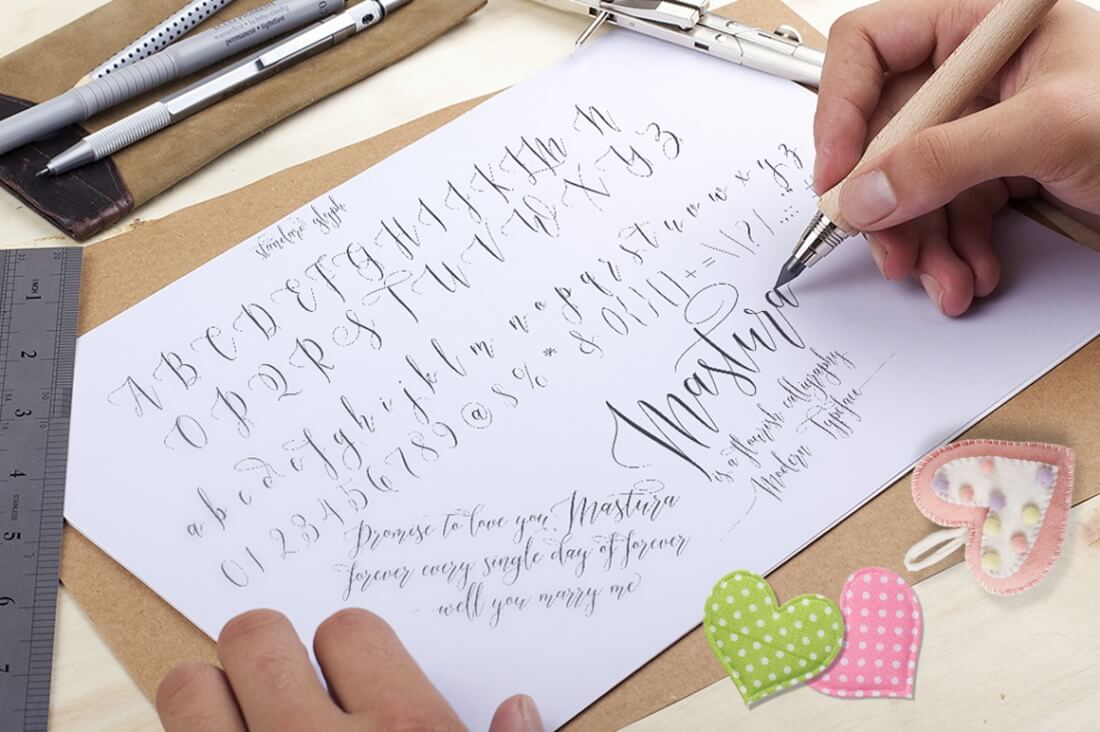 waterproof • lichtbeständig
permanent • lightfast
standard glyph
A B C D E F G H I J K L M N
O P Q R S T U V W X Y Z
a b c d e f g h i j k l m n o p q r s t u v w x y z
0 1 2 3 4 5 6 7 8 9 @ $ % * &
Mastura
is a flourish calligraphy
Modern Typeface
Promise to love you, Mastura
forever every single day of forever
well you marry me
INCH
1
2
3
4
5
6
7
STAINLESS